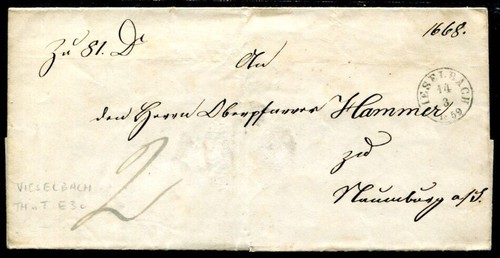 1668.
Zu 81. Dr
An
VIESELBACH
14
3
59
den Herrn Oberpfarrer Hammer
zu
Naumburg a/S.
2
VIESELBACH
TH-T E30